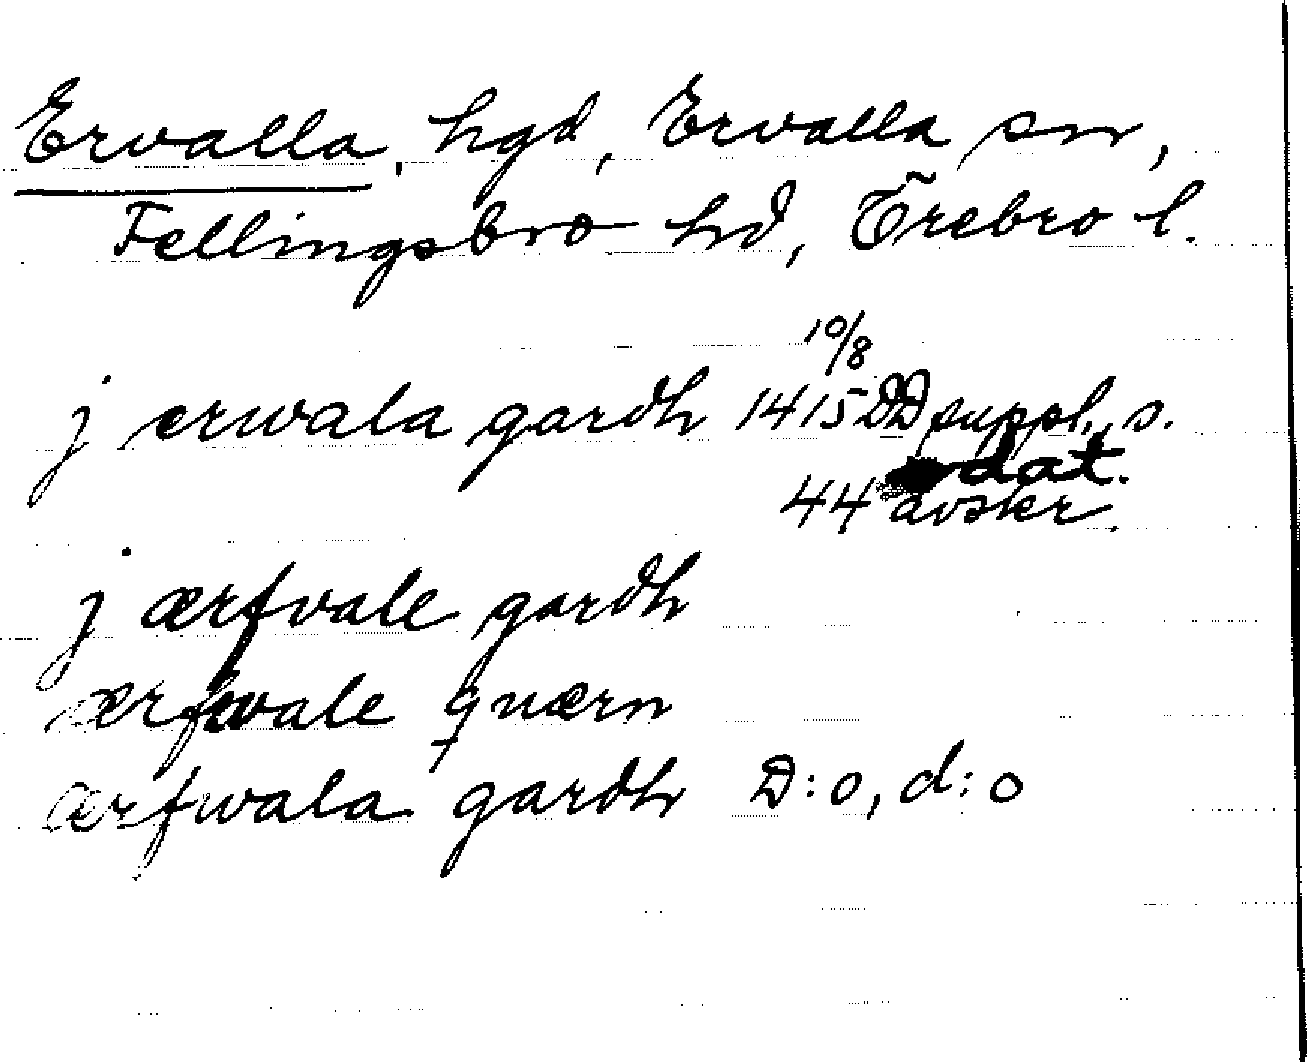 Ervalla, hgd, Ervalla sn,
Fellingsbro hd, Örebro l.
10/8
j ærwala gardh 1415 DD suppl., s.
dat.
44 avskr.
j ærfvale gardh
ærfwale quærn
ærfwala gardh D:o, d:o